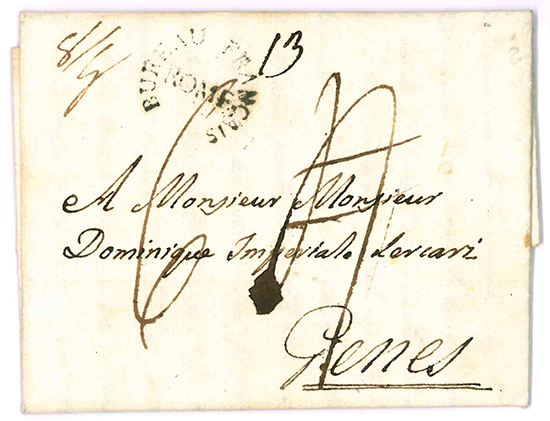 13
BUREAU FRANCAIS
ROME
A Monsieur Monsieur
Dominique Imperiale Lercari
Genes